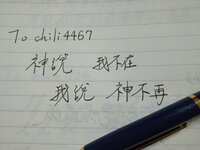 To chili4467
神说 我不在
我说 神不再